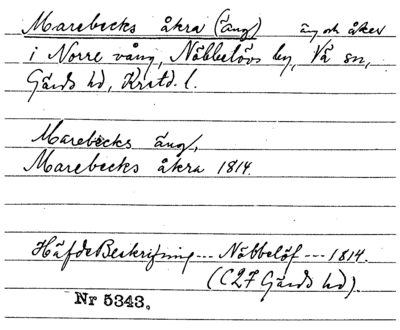 Marebecks åkra (äng) äng och åker
i Norre vång, Näbbelövs by, Vä sn,
Gärds hd, Krstd. l.
Marebecks äng,
Marebecks åkra 1814.
Häfde Beskrifning --- Näbbelöf --- 1814.
(C27 Gärds hd).
Nr 5343.